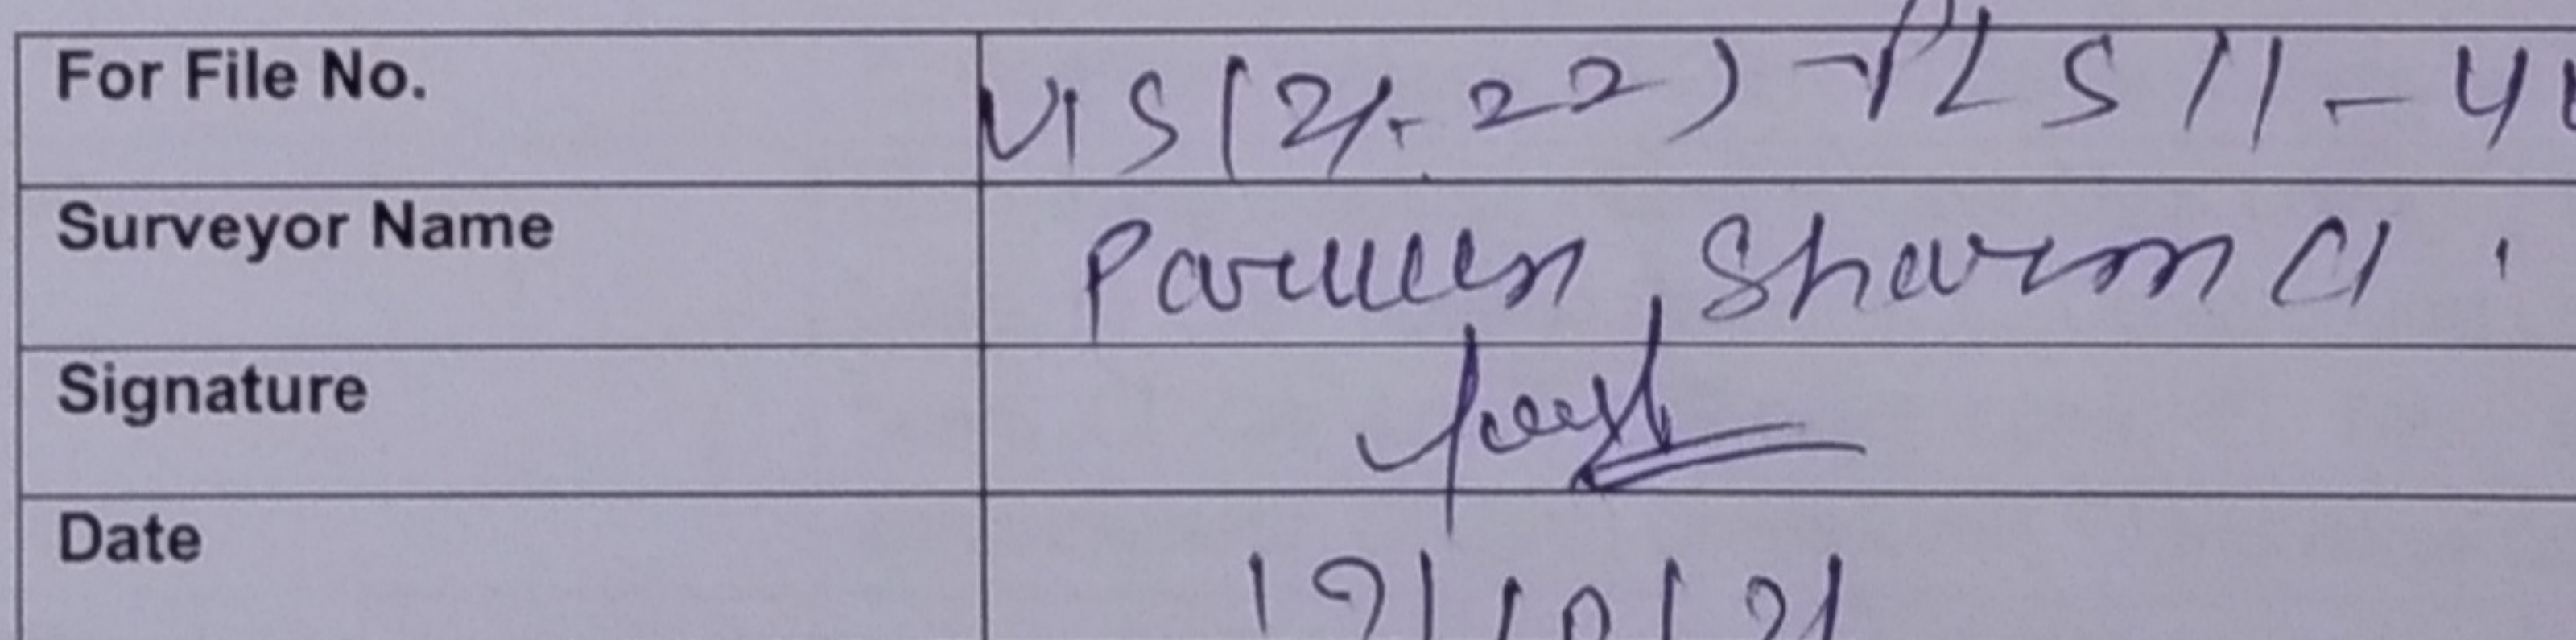 For File No. VIS(21-22)-PL511-4
Surveyor Name Parveen Sharma
Signature
Date